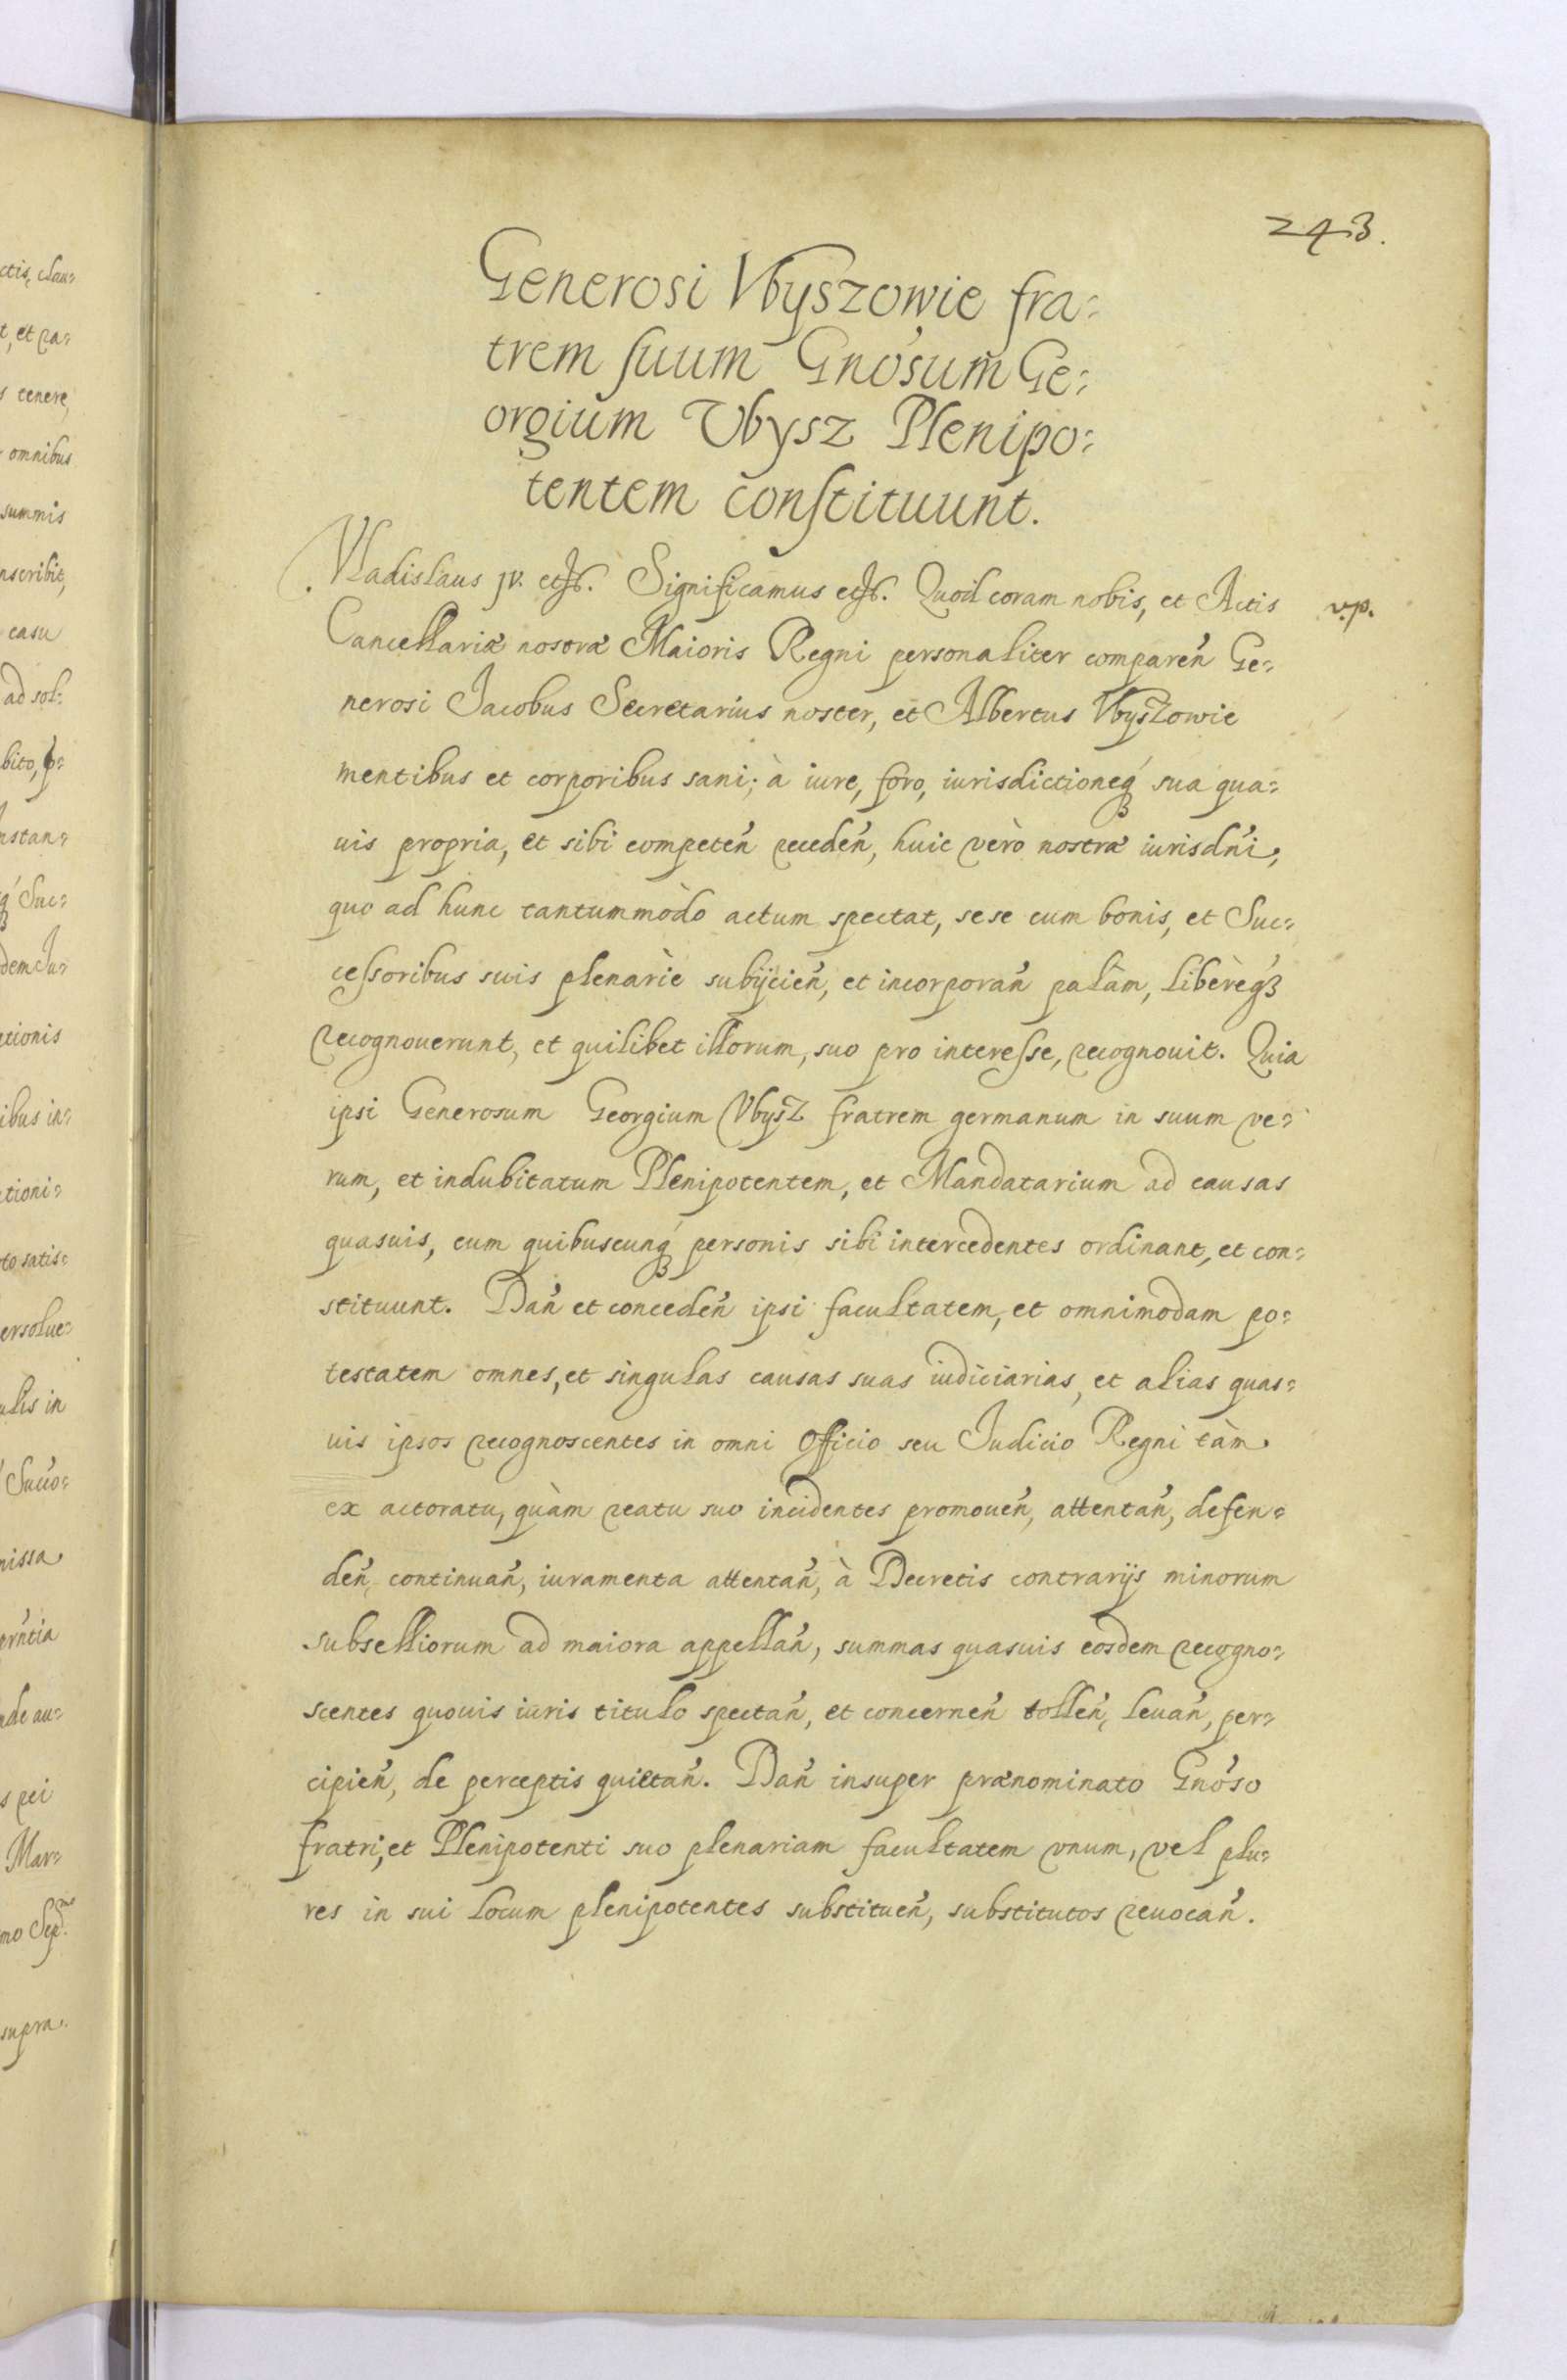 243.
Generosi Vbyszowie fra=
trem suum Gnosum Ge=
orgium Vbysz Plenipo=
tentem constituunt.
Vladislaus jv. etc. Significamus etc. Quod coram nobis, et Actis
v.p.
Cancellariæ nostræ Maioris Regni personaliter comparen̄ Ge=
nerosi Jacobus Secretarius noster, et Albertus Vbyszowie
mentibus et corporibus sani; à iure, foro, iurisdictioneq́ꝫ sua qua=
uis propria, et sibi competen̄ receden̄, huic verò nostræ iurisdn̄i,
quo ad hunc tantummòdo actum spectat, sese cum bonis, et Suc=
cessoribus suis plenariè subijcien̄, et incorporan̄ palàm, liberèq́ꝫ
recognouerunt, et quilibet illorum, suo pro interesse, recognouit. Quia
ipsi Generosum Georgium Vbysz fratrem germanum in suum ve=
rum, et indubitatum Plenipotentem, et Mandatarium ad causas
quasuis, cum quibuscunq́ꝫ personis sibi intercedentes ordinant, et con=
stituunt. Dan̄ et conceden̄ ipsi facultatem, et omnimodam po=
testatem omnes, et singulas causas suas iudiciarias, et alias quas=
uis ipsos recognoscentes in omni Officio seu Judicio Regni tàm
ex actoratu, quàm reatu suo incidentes promouen̄, attentan̄, defen=
den̄, continuan̄, iuramenta attentan̄, à Decretis contrarijs minorum
subselliorum ad maiora appellan̄, summas quasuis eosdem recogno=
scentes quouis iuris titulo spectan̄, et concernen̄ tollen̄, leuan̄, per=
cipien̄, de perceptis quietan̄. Dan̄ insuper prænominato Gnoso
fratri, et Plenipotenti suo plenariam facultatem vnum, vel plu=
res in sui locum plenipotentes substituen̄, substitutos reuocan̄.